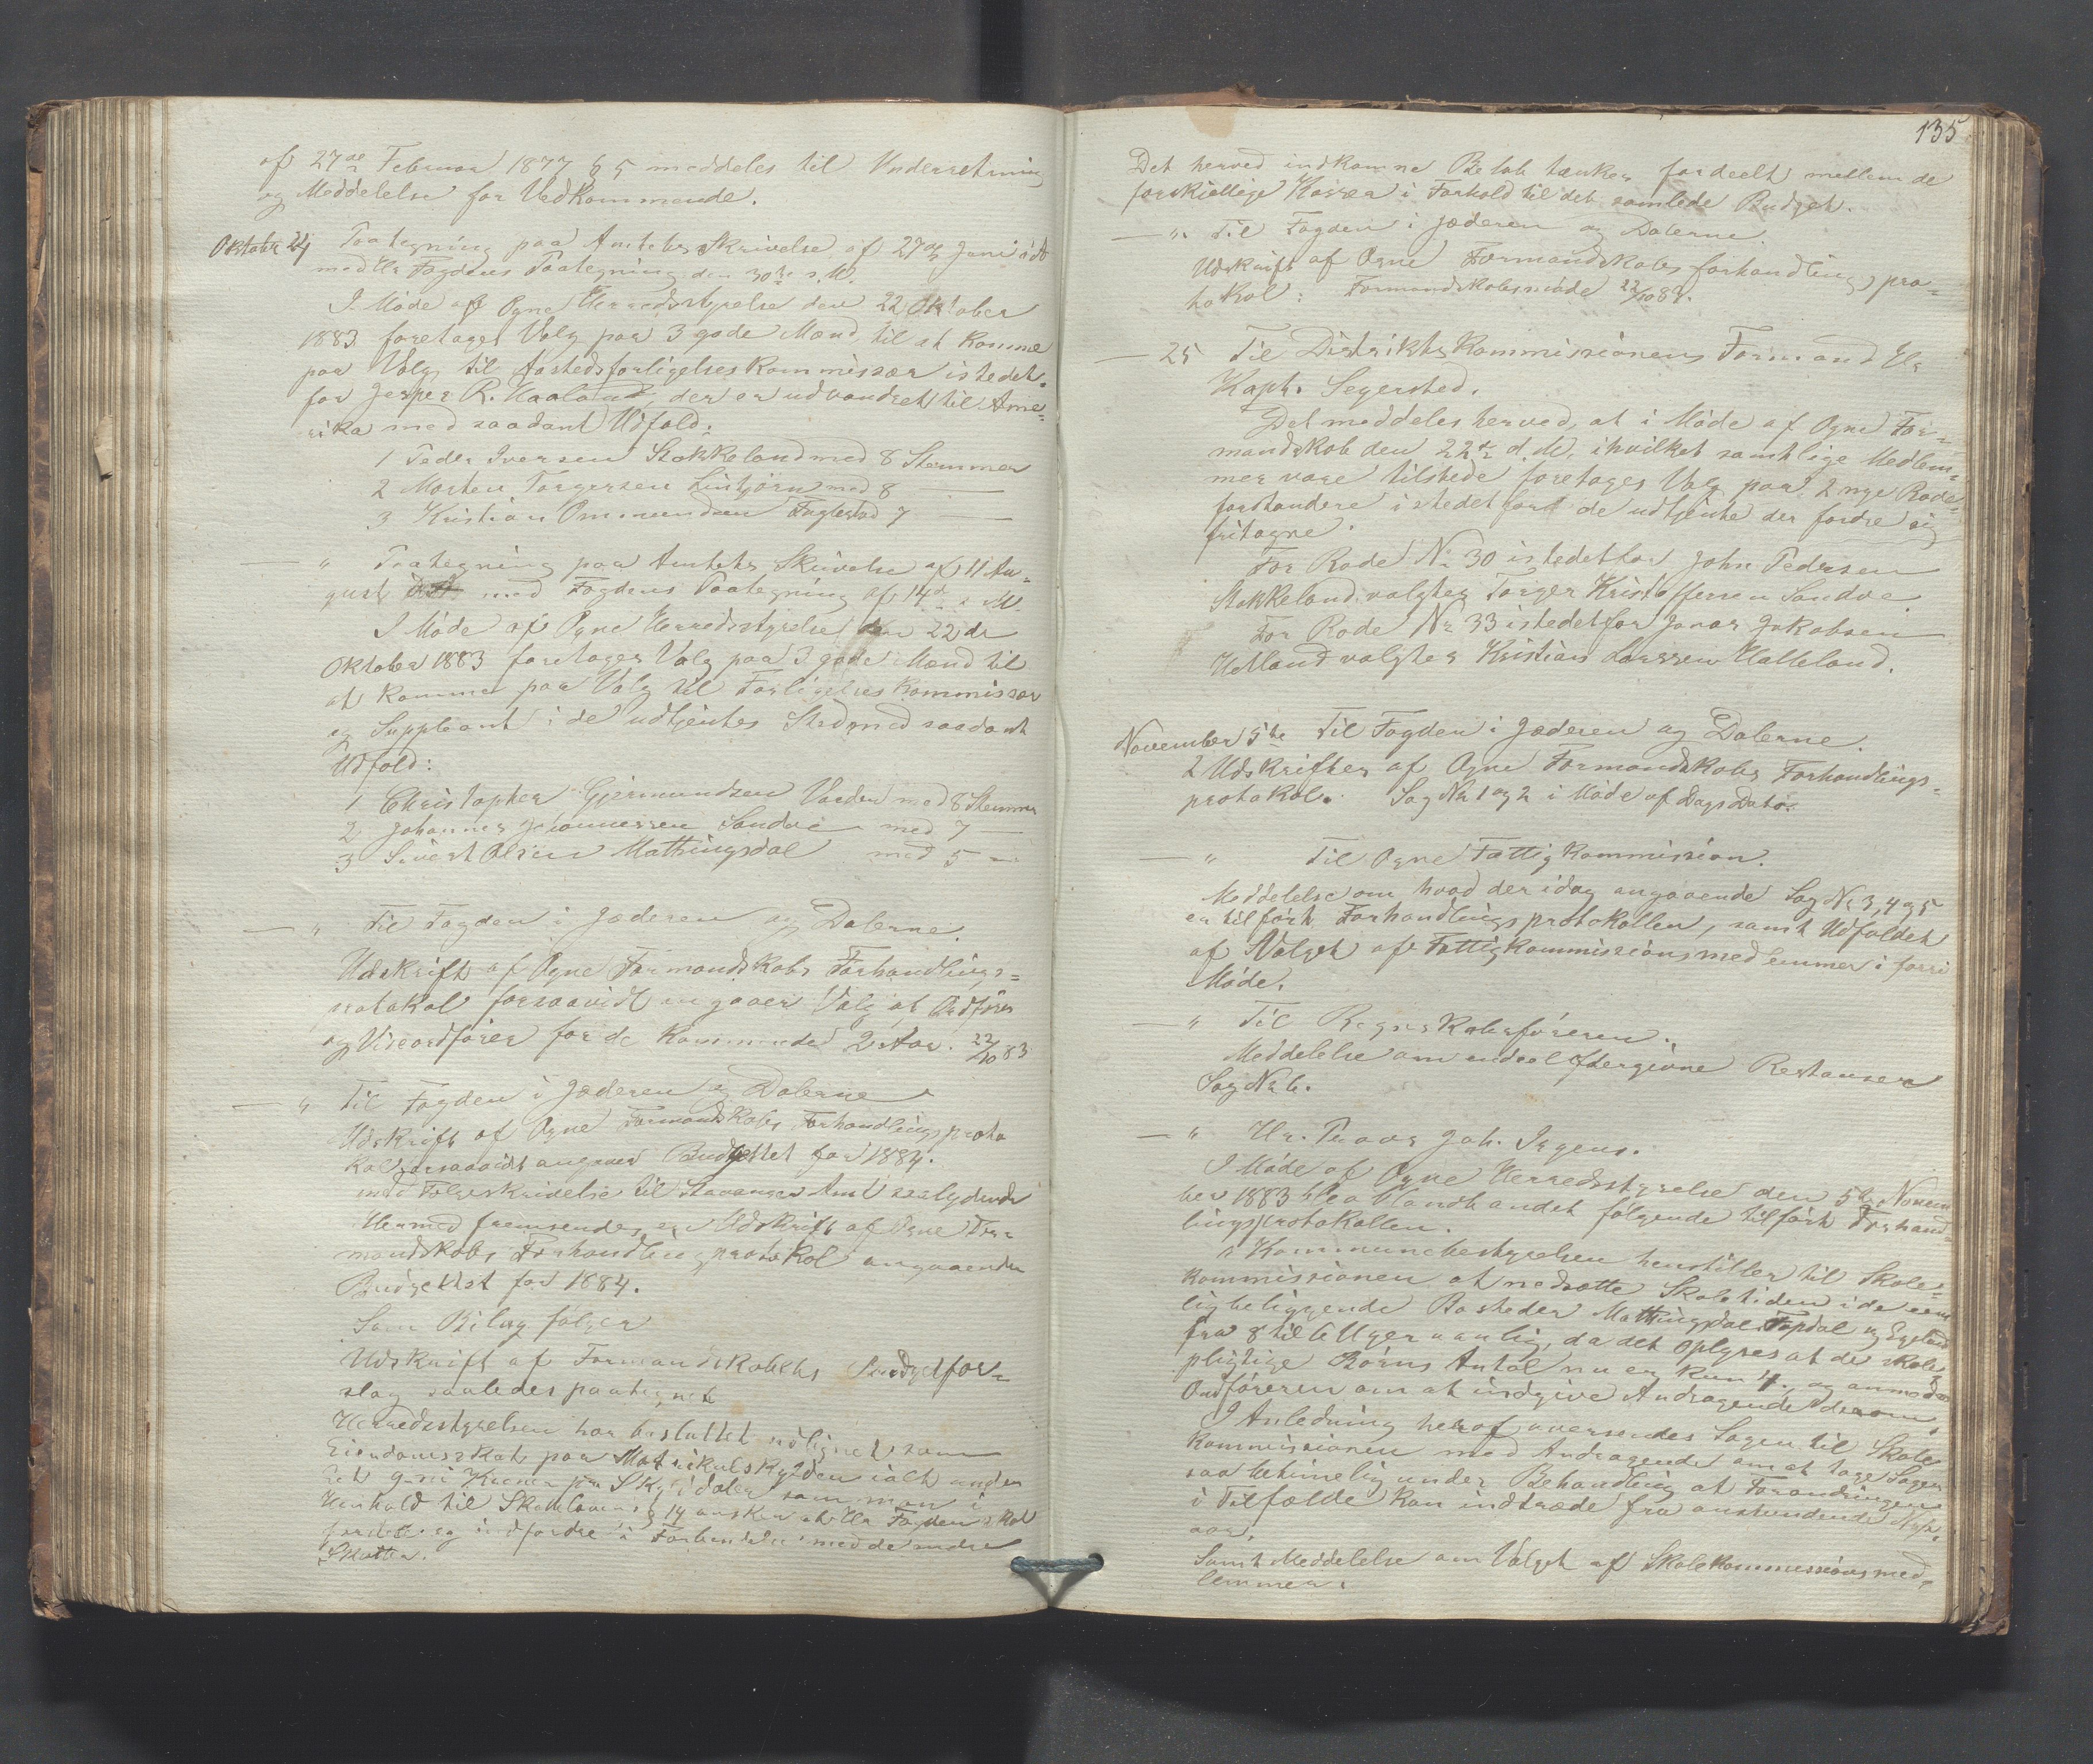 af 27de Februar 1877 § 5 meddeles til Underretning
og Meddelelse for Vedkommende.
Oktober 24 Paategning paa Amtets Skrivelse af 27de Juni
med Hr Fogdens Paategning den 30te s. M.
I Möde af Ogne Herredsstyrelse den 22 Oktober
1883 foretoges Valg paa 3 gode Mænd til at komme
paa Valg til Aastedsforligelseskommissær istedet-
for Jesper R. Haaland, der er udvandret til Ame-
rika med saadant Udfald:
1 Peder Iversen Stokkeland med 8 Stemmer
2 Morten Torgersen Lintjörn med 8 —
3 Kristian Ommundsen Fuglestad 7 —
— " Paategning paa Amtets Skrivelse af 11 Au-
gust med Fogdens Paategning af 14de s. M.
I Möde af Ogne Herredsstyrelse den 22de
Oktober 1883 foretoges Valg paa 3 gode Mænd til
at komme paa Valg til Forligelseskommissær
og Suppleant i de udtjentes Sted med saadant
Udfald:
1 Christopher Gjermundsen Varden med 8 Stemmer
2 Johannes Johannessen Sandve med 7 —
3 Sivert Olsen Mathingsdal med 5 —
— " Til Fogden i Jæderen og Dalerne.
Udskrift af Ogne Formandskabs Forhandlings-
protokol forsaavidt angaaer Valg af Ordförer
og Viceordförer for de kommende 2 Aar. 22/10 83
— " Til Fogden i Jæderen og Dalerne
Udskrift af Ogne Formandskabs Forhandlingsproto
kol forsaavidt angaaer Budgettet for 1884.
med Fölgeskrivelse til Stavanger Amt saalydende
Hermed fremsendes en Udskrift af Ogne For-
mandskabs Forhandlingsprotokol angaaende
Budgettet for 1884.
Som Bilag fölger
Udskrift af Formandskabets Budgetfor-
slag saaledes paategnet
Herredsstyrelsen har besluttet udlignet som
Eiendomsskat paa Matrikulskylden ialt under
Et 9-ni Kroner pr Skylddaler som man i
Henhold til Skatteloven § 14 önsker at Hr Fogden skal
fordele og indfordre i Forbindelse med de andre
Skatter.
135
Det herved indkomne Belöb tænkes fordeelt mellem de
forskjellige Kasser i Forhold til det samlede Budget.
— " Til Fogden i Jæderen og Dalerne.
Udskrift af Ogne Formandskabs forhandlings pro-
tokol: Formandskabsmöde 22/10 83.
— 25 Til Distriktskommissionens Formand Hr
Kapt. Segersted.
Det meddeles herved, at i Möde af Ogne For-
mandskab den 22de d. M., i hvilket samtlige Medlem-
mer vare tilstede foretoges Valg paa 2 nye Rode-
forstandere i stedet for de udtjente der fordre sig
fritagne.
For Rode No 30 istedetfor John Pedersen
Stokkeland valgtes Torger Kristoffersen Sandve.
For Rode No 33 istedetfor Jonas Jakobsen
Helland valgtes Kristian Larssen Halleland.
November 5te Til Fogden i Jæderen og Dalerne.
2 Udskrifter af Ogne Formandskabs Forhandlings-
protokol. Sag No 1 og 2 i Möde af Dags Dato.
— " Til Ogne Fattigkommission.
Meddelelse om hvad der idag angaaende Sag No 3, 4 og 5
er tilfört Forhandlingsprotokollen, samt Udfaldet
af Valget af Fattigkommissionsmedlemmer i forri
Möde.
— " Til Regnskabsföreren.
Meddelelse om endeel eftergivne Restanser
Sag No 6.
— " Hr. Provs Joh. Irgens.
I Möde af Ogne Herredsstyrelse den 5te Novem
ber 1883 blev blandt andet fölgende tilfört Forhand-
lingsprotokollen.
" Kommunebestyrelsen henstiller til Skole-
kommissionen at nedsætte Skoletiden i de een
ligbeliggende Bosteder Mathingsdal, Tøpdal og Egeland
fra 8 til 6 Uger aarlig, da det oplyses at de skole
pligtige Börns Antal nu er kun 4, og anmoder
Ordföreren om at indgive Andragende derom.
I Anledning heraf oversendes Sagen til Skole
kommissionen med Andragende om at tage Sagen
saa betimelig under Behandling at Forandringen
i Tilfælde kan indtræde fra anstundende Nyt-
aar.
Samt Meddelelse om Valget af Skolekommissionsmed-
lemmer.